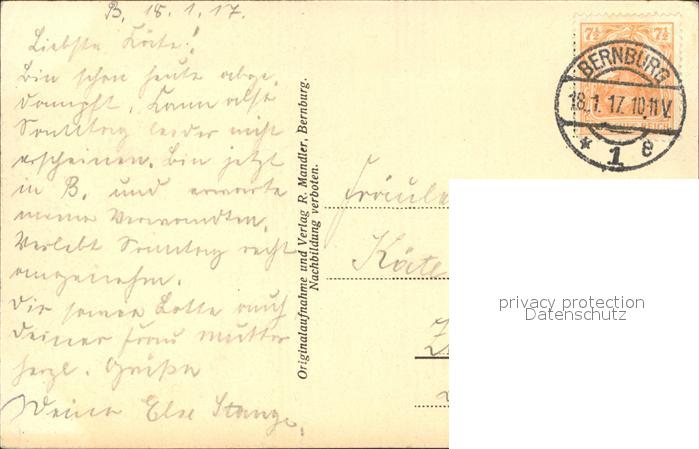 B. 18.1.17.
Liebste Käte!
Bin schon heute abge-
dampft. Kann also
Sonntag leider nicht
erscheinen. Bin jetzt
in B. und erwarte
meine Verwandten.
Verlebt Sonntag recht
angenehm.
Dir sowie Lotte auch
Deiner Frau Mutter
herzl. Grüße
Deine Else Stange.
Originalaufnahme und Verlag R. Mandler, Bernburg.
Nachbildung verboten.
7½ 7½
BERNBURG
18.1.17.10-11V.
* 1 e
Fräule
Käte
privacy protection
Datenschutz